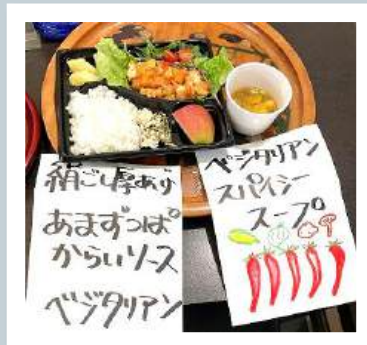 絹ごし厚あげ
あまずっぱ
からいソース
ベジタリアン
ベジタリアン
スパイシー
スープ